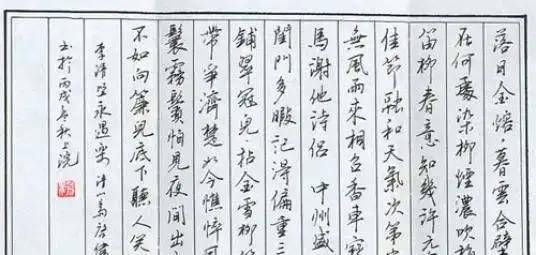 落日金熔，暮雲合璧
在何處染柳煙濃吹梅
笛柳春意知幾許元
佳節融和天氣次第
無風雨來相召香車寶
馬謝他詩侶 中州盛
閨門多暇記得偏重三
鋪翠冠兒拈金雪柳
帶爭濟楚如今憔悴
鬟霧鬢怕見夜間出
不如向簾兒底下聽人笑
李清照永遇樂
書於丙戌年秋上浣